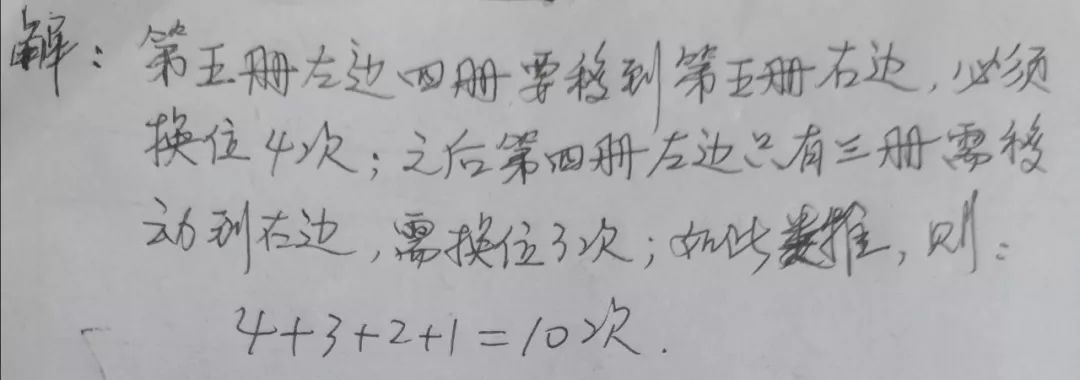 解：第五册左边四册要移到第五册右边，必须
换位4次；之后第四册左边只有三册需移
动到右边，需换位3次；如此类推，则：
4+3+2+1=10次．